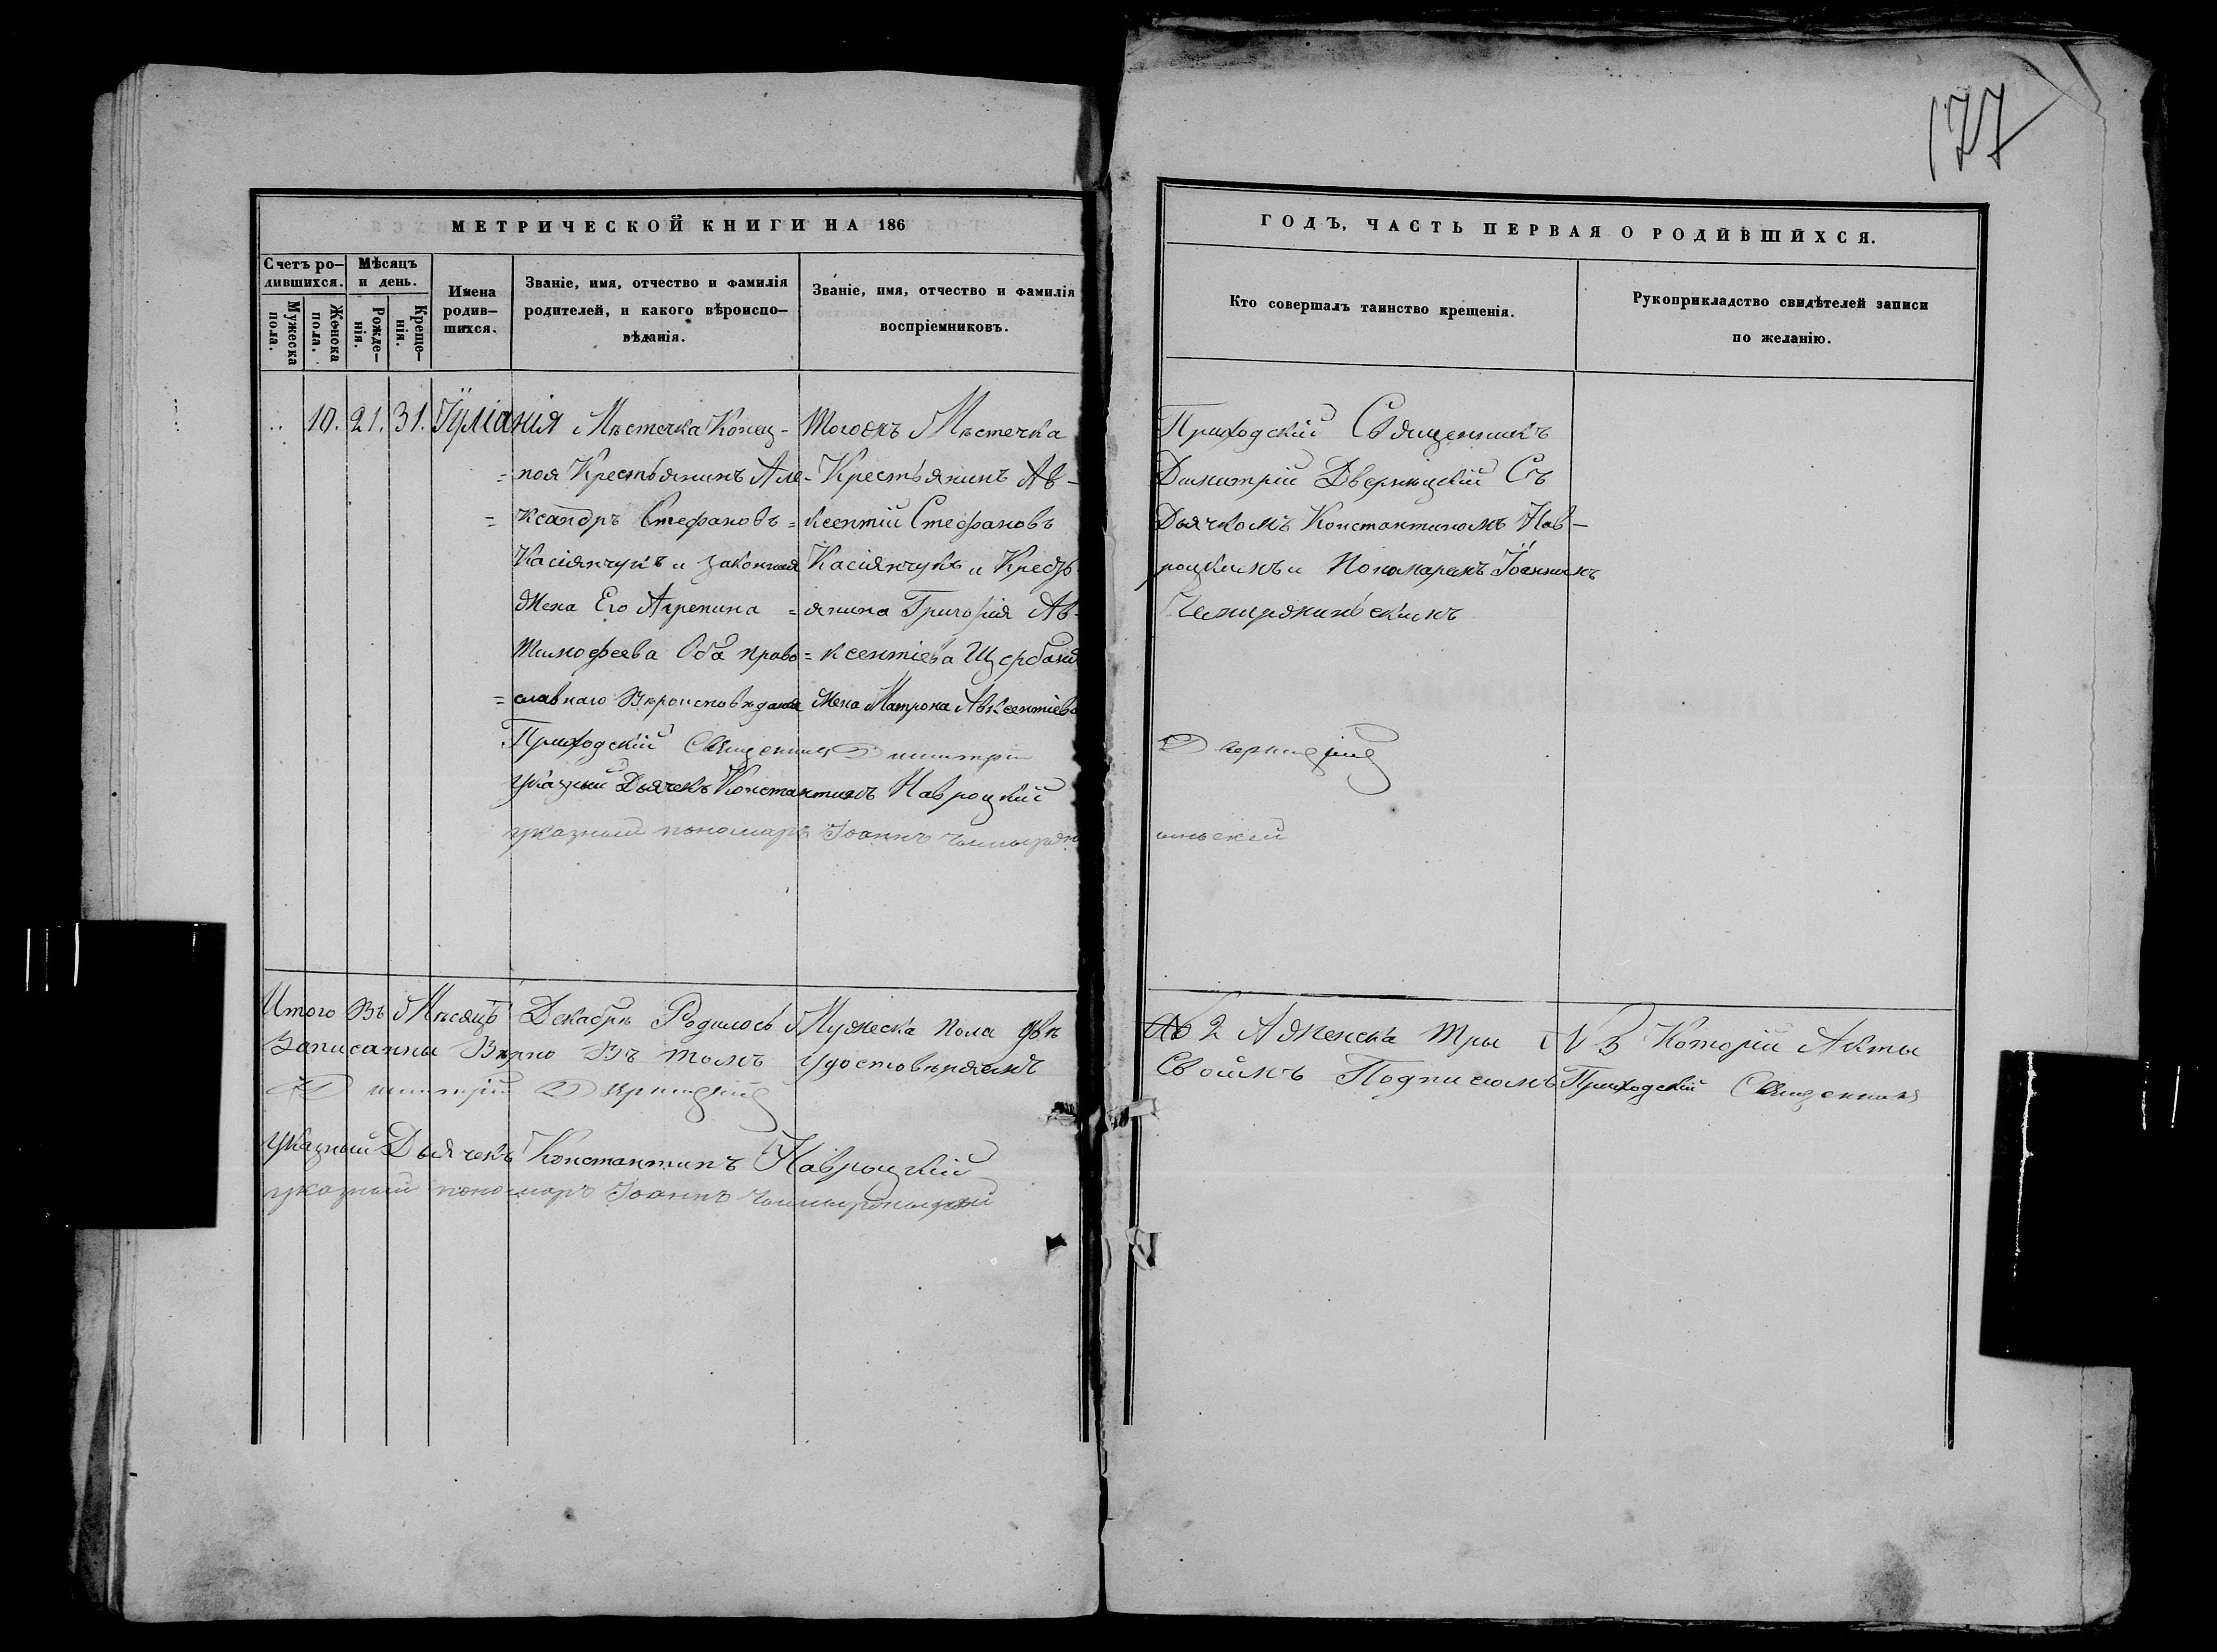 177
МЕТРИЧЕСКОЙ КНИГИ НА 186
ГОДЪ, ЧАСТЬ ПЕРВАЯ О РОДИВШИХСЯ.
Счетъ ро-
дившихся.
Мужеска
пола.
Женска
пола.
Мѣсяцъ
и день.
Рожде-
нія.
Креще-
нія.
Имена
родив-
шихся.
Званіе, имя, отчество и фамилія
родителей, и какого вѣроиспо-
вѣданія.
Званіе, имя, отчество и фамилія
воспріемниковъ.
Кто совершалъ таинство крещенія.
Рукоприкладство свидѣтелей записи
по желанію.
10. 21. 31. Іуліанія
Мѣстечка Конец-
=пол Крестьянинъ Але-
=ксандръ Стефановъ =
Касіянчукъ и законная
Жена Его Агрепина =
Тимофеева Оба право=
=славнаго Вѣроисповѣданія
Тогожъ Мѣстечка
Крестьянинъ Ав-
ксентій Стефановъ
Касіянчукъ и Кресть
янина Григорія Ав-
ксентіева Щербаня
Жена Матрона Авксентіева
Приходскій Священникъ
Димитрій Дверницкій Съ
Дьячкомъ Константиномъ Нав-
роцкимъ и Пономаремъ Іоанномъ
Приходскій Священникъ Димитрій Дверницкій
Указный Дьячекъ Константинъ Навроцкій
указный пономарь Іоаннъ
Итого Въ Мѣсяцѣ Декабрѣ Родилось Мужеска Пола двѣ № 2 А Женска Тры № 3 Которіи Акты
Записанны Вѣрно Въ томъ Удостовѣряемъ Своимъ Подписомъ Приходскій Священникъ
Димитрій Дверницкій
Указный Дьячекъ Константинъ Навроцкій
указный пономарь Іоаннъ